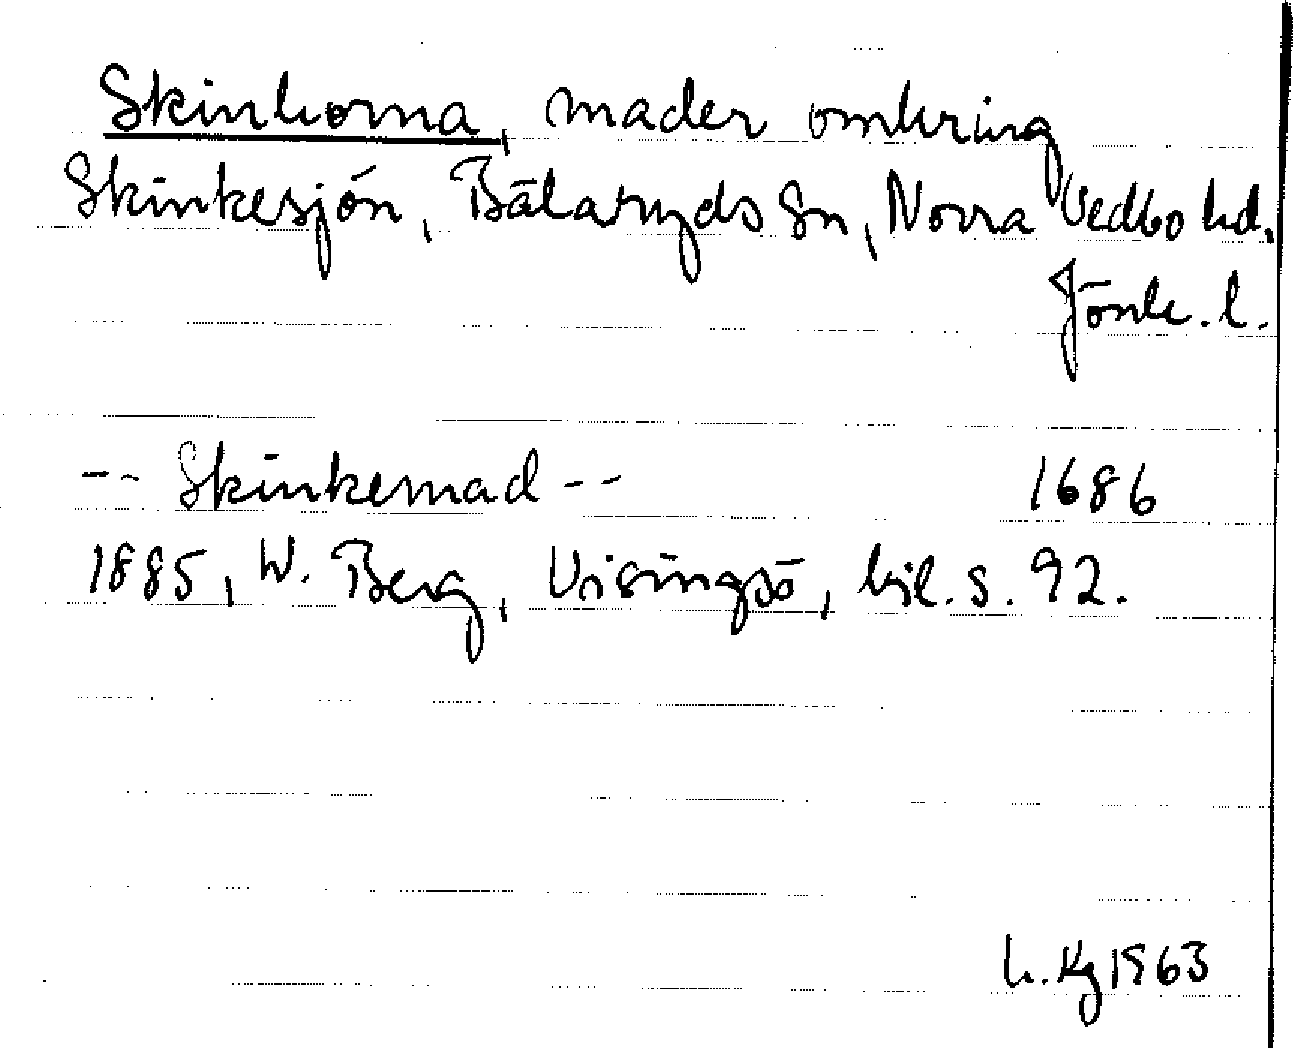 Skinkorna, mader omkring
Skinkesjön, Bälaryds Sn, Norra Vedbo hd.
Jönk. l.
-- Skinkemad -- 1686
1885, W. Berg, Visingsö, bil. s. 92.
h. Kg 1963